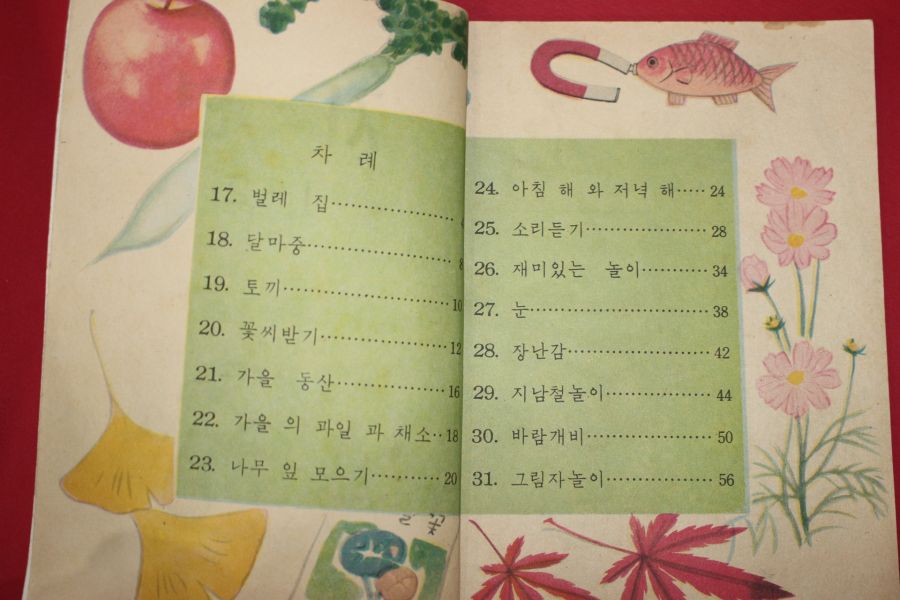 차 례
17. 벌레 집
18. 달마중 8
19. 토끼 10
20. 꽃씨받기 12
21. 가을 동산 16
22. 가을 의 과일 과 채소 18
23. 나무 잎 모으기 20
24. 아침 해 와 저녁 해 24
25. 소리듣기 28
26. 재미있는 놀이 34
27. 눈 38
28. 장난감 42
29. 지남철놀이 44
30. 바람개비 50
31. 그림자놀이 56
꽃